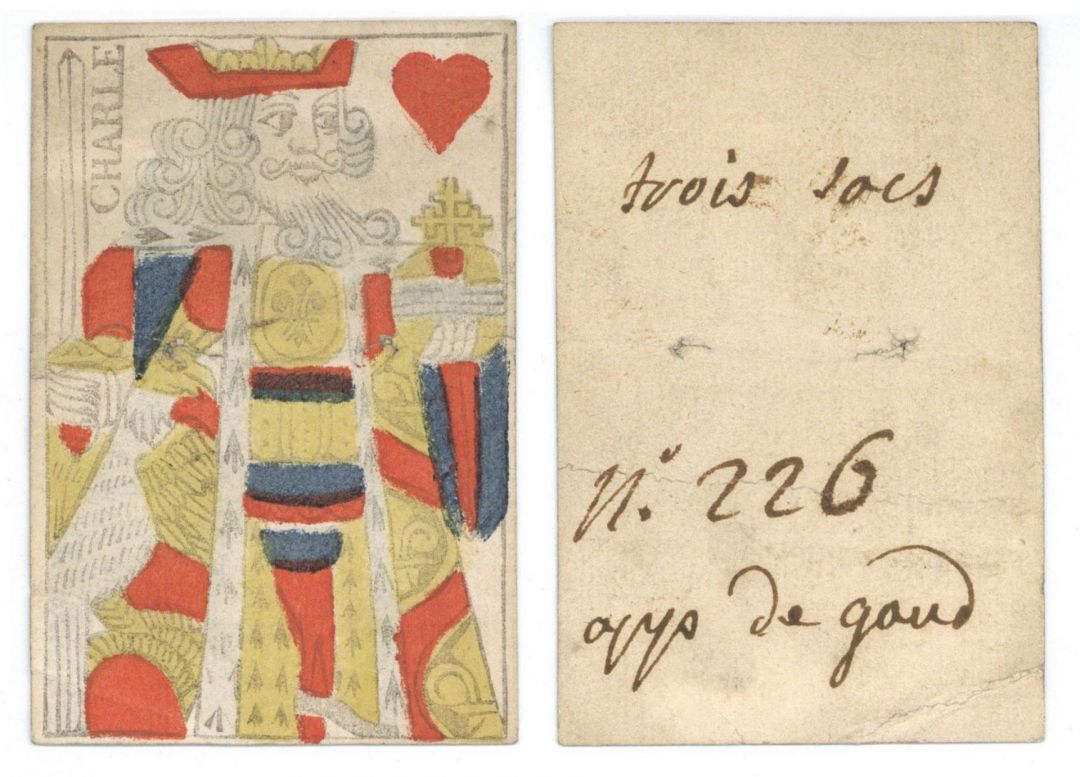 CHARLE
trois sacs
N.° 226
apps de gand